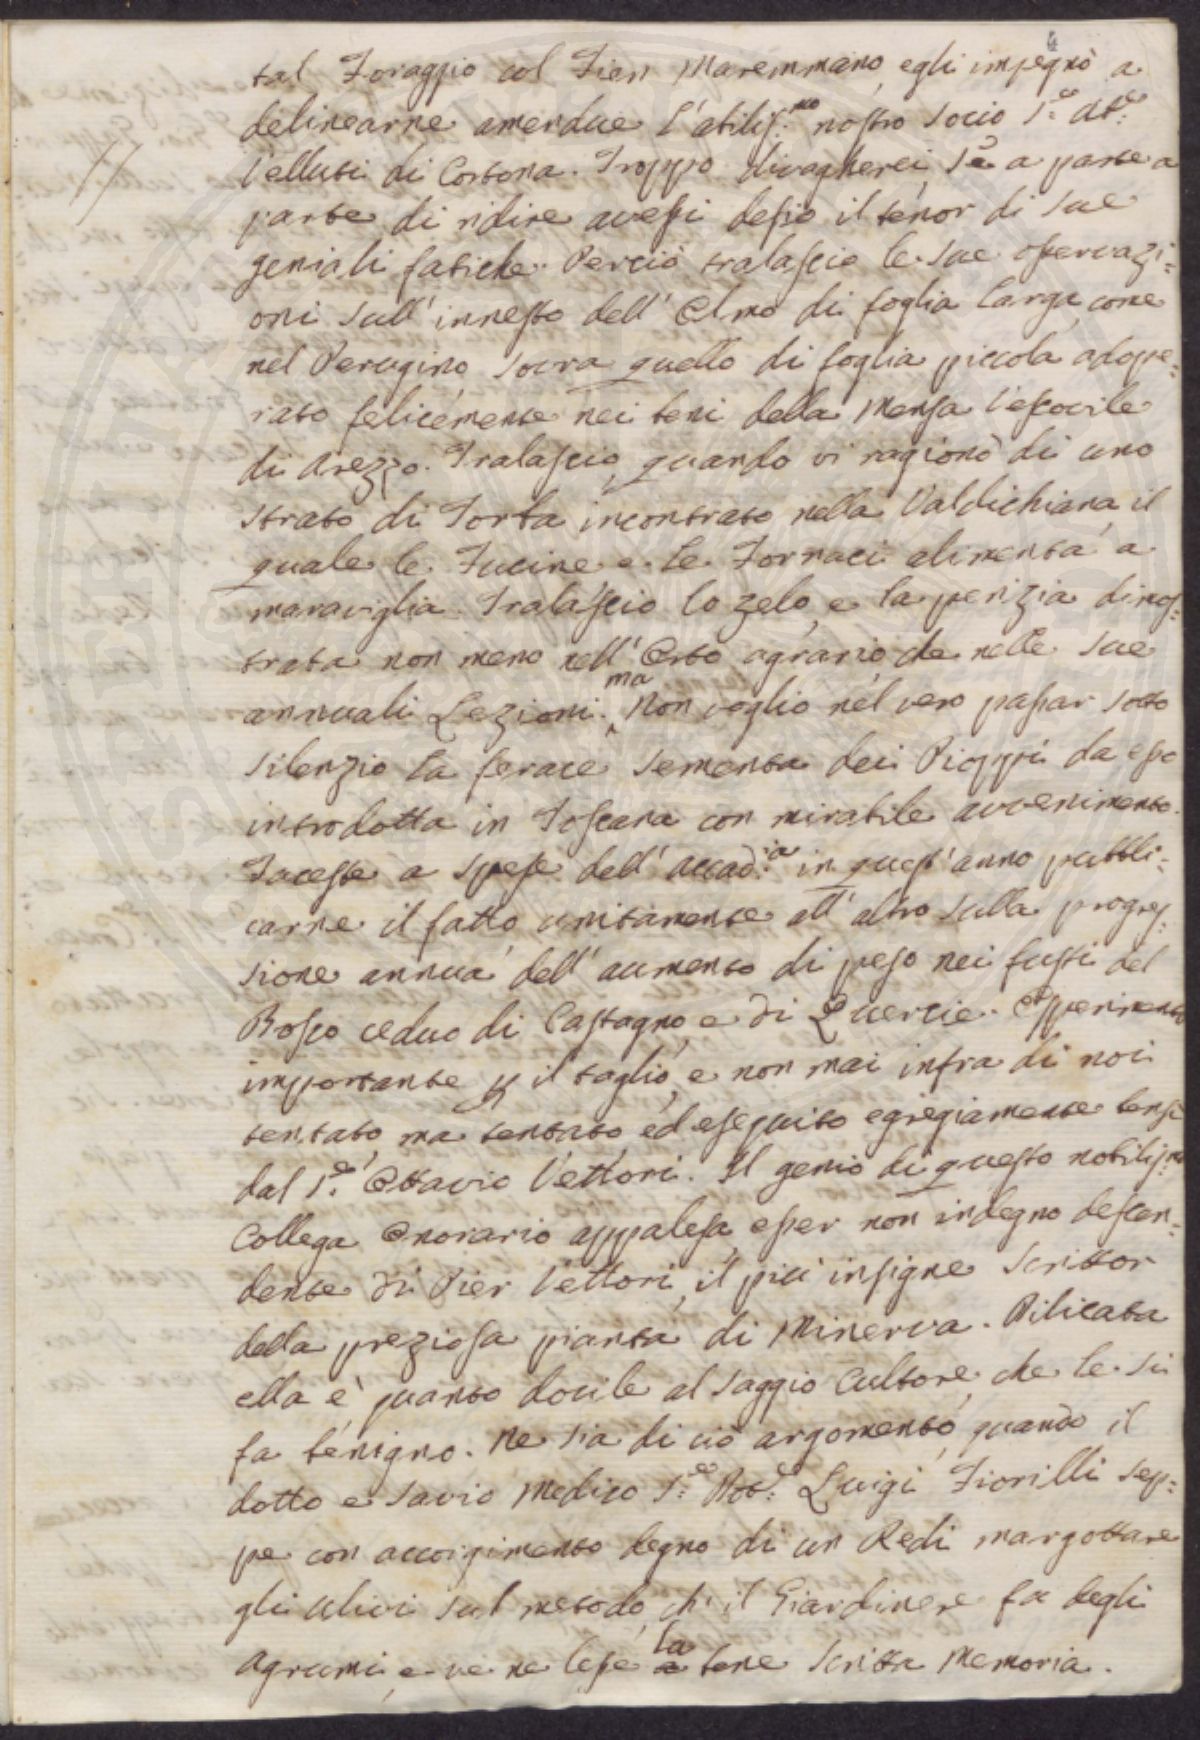 4
tal Foraggio col Fien Maremmano, egli impegnò a
delinearne amendue l'abilis.mo nostro Socio S.e Ab.e
Velluti di Cortona. Troppo divagherei, se a parte a
parte di ridire avessi desio il tenor di sue
geniali fatiche. Perciò tralascio le sue osservazi=
oni sull'innesto dell'Olmo di foglia larga, come
nel Perugino sovra quello di foglia piccola adope=
rato felicemente nei beni della Mensa Vescovile
di Arezzo. Tralascio, quando vi ragionò di uno
strato di Torba incontrato nella Valdichiana, il
quale le Fucine e le Fornaci alimenta a
maraviglia. Tralascio lo zelo, e la perizia dimos=
trata non meno nell'Orto agrario che nelle sue
annuali Lezioni. ma Non voglio nel vero passar sotto
silenzio la ferace sementa dei Pioppi da esso
introdotta in Toscana con mirabile avvenimento.
Faceste a spese dell'Accad.ia in quest'anno pubbli=
carne il fatto unitamente all'altro sulla progres=
sione annua dell'aumento di peso nei fusti del
Bosco ceduo di Castagno, e di Quercie. Esperimento
importante p il taglio, e non mai infra di noi
tentato, ma tentato ed eseguito egregiamente bensì
dal S.e Ottavio Vettori. Il genio di questo nobilis.mo
Collega Onorario appalesa esser non indegno descen=
dente di Pier Vettori, il più insigne Scrittor
della preziosa pianta di Minerva. Dilicata
ella è quanto docile al saggio Cultore, che le si
fa benigno. Ne sia di ciò argomento, quando il
dotto e savio Medico S.e Dot.e Luigi Fiorilli sep=
pe con accorgimento degno di un Redi margottare
gli ulivi sul metodo, ch'il Giardinere fa degli
agrumi, e ve ne lesse la bene scritta Memoria.